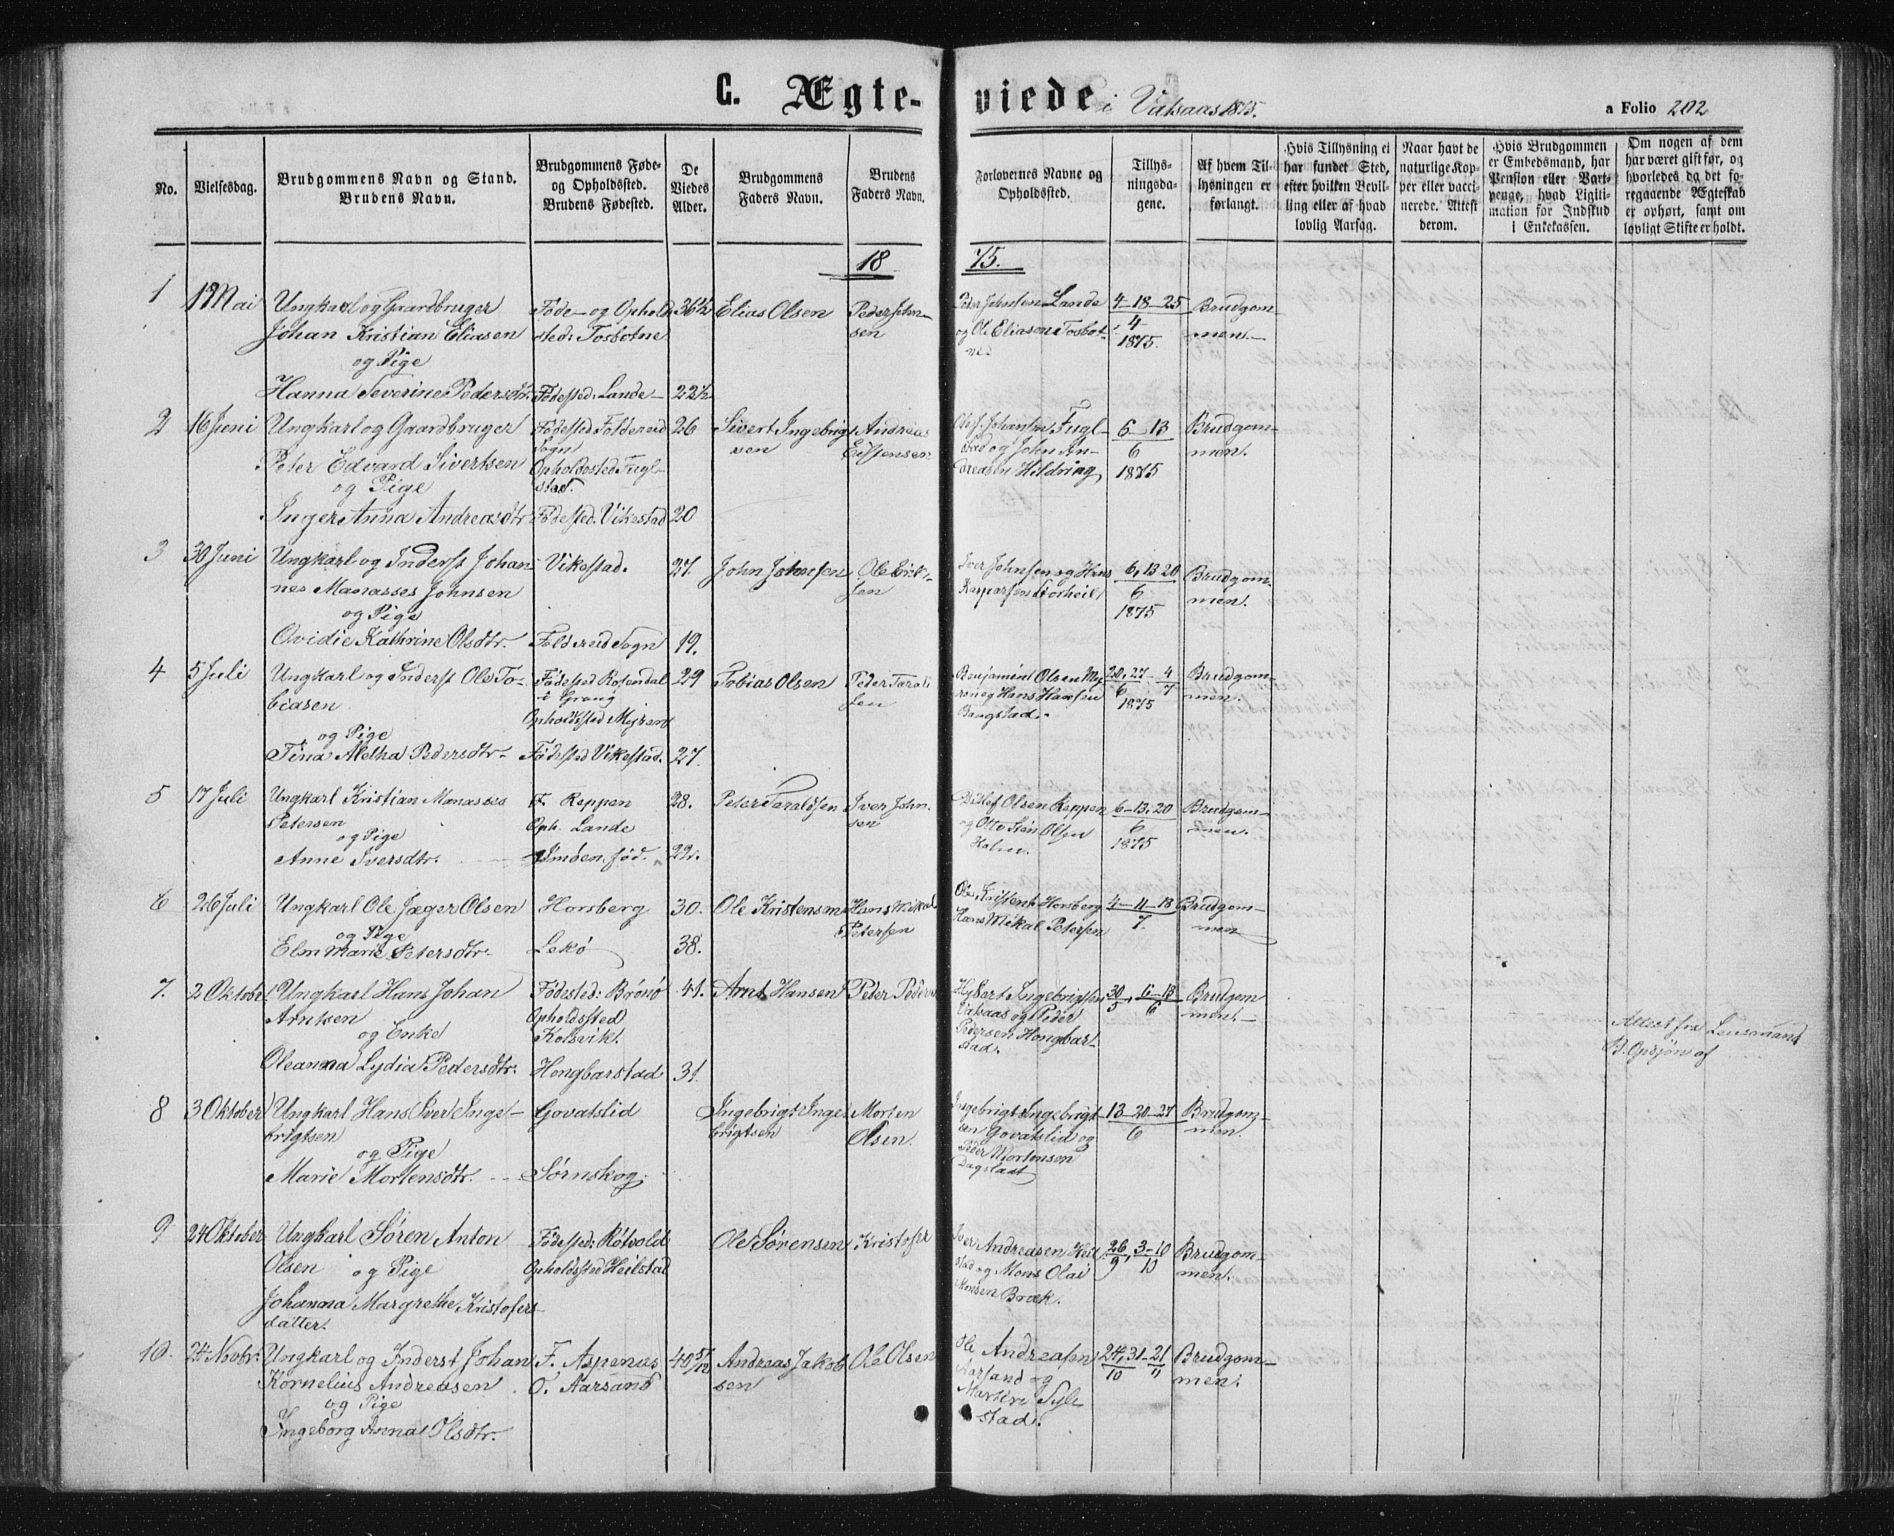 C. Ægte-viede i Vatsaas 1875.
a Folio 202
No.
Vielsesdag.
Brudgommens Navn og Stand.
Brudens Navn.
Brudgommens Føde-
og Opholdssted.
Brudens Fødested.
De
Viedes
Alder.
Brudgommens
Faders Navn.
Brudens
Faders Navn.
Forlovernes Navne og
Opholdssted.
Tillys-
ningsda-
gene.
Af hvem Til-
lysningen er
forlangt.
Hvis Tillysning ei
har fundet Sted,
efter hvilken Bevil-
ling eller af hvad
lovlig Aarsag.
Naar havt de
naturlige Kop-
per eller vacci-
nerede. Attest
derom.
Hvis Brudgommen
er Embedsmand, har
Pension eller Vart-
penge, hvad Ligiti-
mation for Indskud
i Enkekassen.
Om nogen af dem
har været gift før, og
hvorledes da det fo-
regaaende Ægteskab
er ophørt, samt om
lovligt Skifte er holdt.
1875.
1
17 Mai
Ungkarl og Gaardbruger
Johan Kristian Eliasen
og Pige
Hanna Severine Pedersdtr.
Føde- og Ophold
sted: Tosbotne
Fødested: Lande
36½
22½
Elias Olsen
Peder John-
sen
Peder Johnsen Lande
og Ole Eliasen Tosbot-
nes
4-18-25
4
1875.
Brudgom-
men.
2
16 Juni
Ungkarl og Gaardbruger
Peter Edvard Sivertsen
og Pige
Inger Anna Andreasdtr.
Fødested Foldereid
Sogn
Opholdssted Fugl-
stad.
Fødested: Vikestad
26
20
Sivert Ingebrigt
sen
Andreas
Johansen Fugl-
stad og John An-
dreasen Hildring
6-13
6
1875
Brudgom-
men.
3
30 Juni
Ungkarl og Inderst Johan-
nes Manasses Johnsen
og Pige
Ovidie Kathrine Olsdtr.
Vikestad.
Foldereid Sogn
27.
19.
John Johnsen
Ole Erik-
sen
Iver Johnsen og Hans
Kasparsen
6, 13 20
6
1875
Brudgom-
men.
4
5 Juli
Ungkarl og Inderst Ole To-
biasen
og Pige
Tina Metha Pedersdtr.
Fødested Rosendal
i Grong
Opholdssted Myren
Fødested Vikestad.
29
27.
Tobias Olsen
Peder
sen
Benjamin Olsen My-
ren og Hans Hansen
Bangstad.
20, 27 - 4
6 7
1875
Brudgom-
men.
5
17 Juli
Ungkarl Kristian Manasses
Petersen
og Pige
Anne Iversdtr.
F. Reppen
Oph. Lande
Simøen fød.
28.
22.
Peter Taraldsen
Iver John-
sen
Ditlef Olsen Reppen
og Otto Olsen
Holm.
6-13, 20
6
1875
Brudgom-
men.
6
26 Juli
Ungkarl Ole Jæger Olsen
og Pige
Elen Marie Petersdtr.
Horsberg
Lekø
30.
38.
Ole Kristensen
Hans Mikal
Petersen
Ole Kristens. Horsberg
Hans Mikal Petersen
4-11-18
7.
Brudgom-
men
7.
2 Oktobr.
Ungkarl Hans Johan
Arntsen
og Enke
Oleanna Lydia Pedersdtr.
Fødested: Brønø
Opholdssted
Kolsvik.
Hongbarstad
41.
31.
Arnt Hansen
Peter Peder
Ingebrigtsen
Vatsaas og Peder
Pedersen Hongbar-
stad.
30, 6-13
5 6
Brudgom
men.
Attest fra Lensmand
B. Opsjøn af
8
3 Oktober
Ungkarl Hans Iver Inge-
brigtsen
og Pige
Marie Mortensdtr.
Govatslid
Sørnskog.
Ingebrigt Inge-
brigtsen
Morten
Olsen.
Ingebrigt Ingebrigt-
sen Govatslid og
Peder Mortensen
Dagslaat
13-20-27
6
Brudgom-
men.
9
24 Oktober
Ungkarl Søren Anton
Olsen og Pige
Johanna Margrethe Kristofers
datter.
Fødested: Røtvold
Opholdssted Heilstad
Ole Sørensen
Kristofer
Iver Andreasen Heil-
stad og Mons Olai
Monsen Bræk.
26, 3-10
9 10
Brudgom-
men.
10.
24 Novbr.
Ungkarl og Inderst Johan
Kornelius Andreasen
og Pige
Ingeborg Anna Olsdtr.
F. Aspenæs
O. Aarsand
40 5/12
Andreas Jakob
sen
Ole Olsen
Ole Andreasen
Aarsand og
stad.
24, 31-21
10 11
Brudgom-
men.